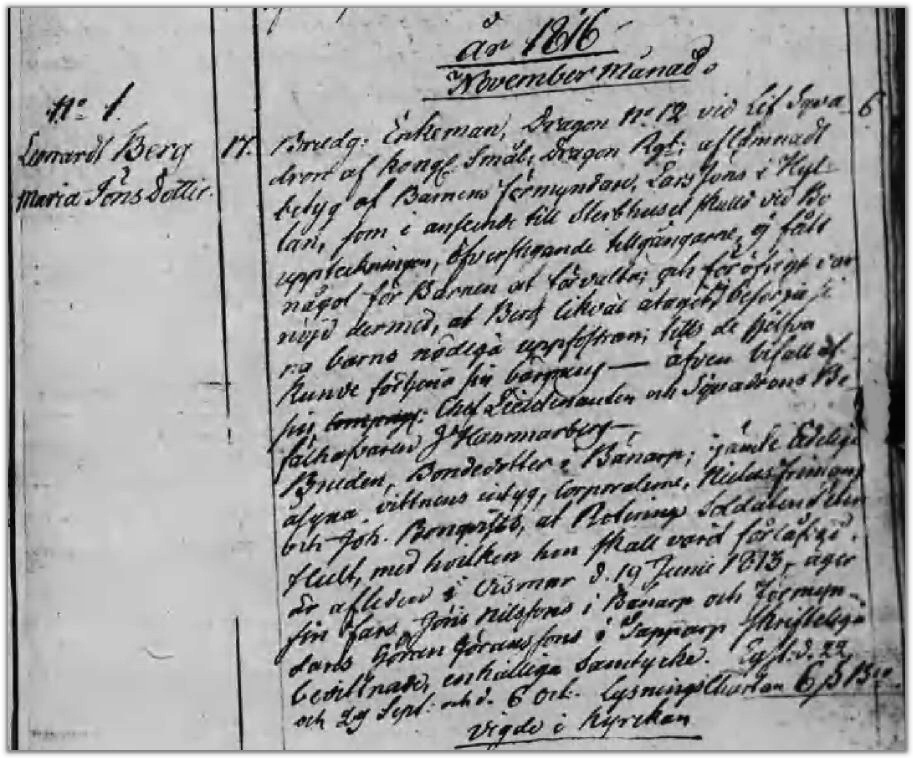 år 1816
November Månad.
No 1.
Lennardt Berg
Maria Jöns dotter.
17.
6
Brudg: Enkeman, Dragon No 12 vid Lif Squa-
dron af Kongl Smål. Dragon Regt; aflämnadt
betyg af Barnens förmyndare, Lars Jöns i Hyl-
tan, som i anseende till Sterbhuset skuld vid Bo
uppteckningen, öfverstigande tillgångarne, ej fått
något för Barnen at förvalta; och för öfrigt var
nöjd dermed, at Berg likväl åtagit besörja si
na barns nödiga uppfostran, tills de sjelfva
kunde förtjena sin bärgning — äfven bifall af
sin Chef Lieutenanten och Squadrons Be
fälhafvaren J Hammarberg —
Bruden, Bondedotter i Bånarp; jämte Edelige
åsyna vittnens intyg, Corporalerne, Niclas Friman
och Joh. Bonqvist, at Rotering Soldaten
Hult, med hvilken hon skall varit förlåfvad,
är afleden i Vismar d. 19 Junii 1813, äger
sin fars Jöns Nilssons i Bånarp och Förmyn-
dans Göran Göranssons i Tapparp skriftelige
bevittnade, enhälliga Samtycke. Lyst. d. 22
och 29 Sept: och d. 6 Oct. Lysnings Chartan 6 ß B:co
Vigde i Kyrckan